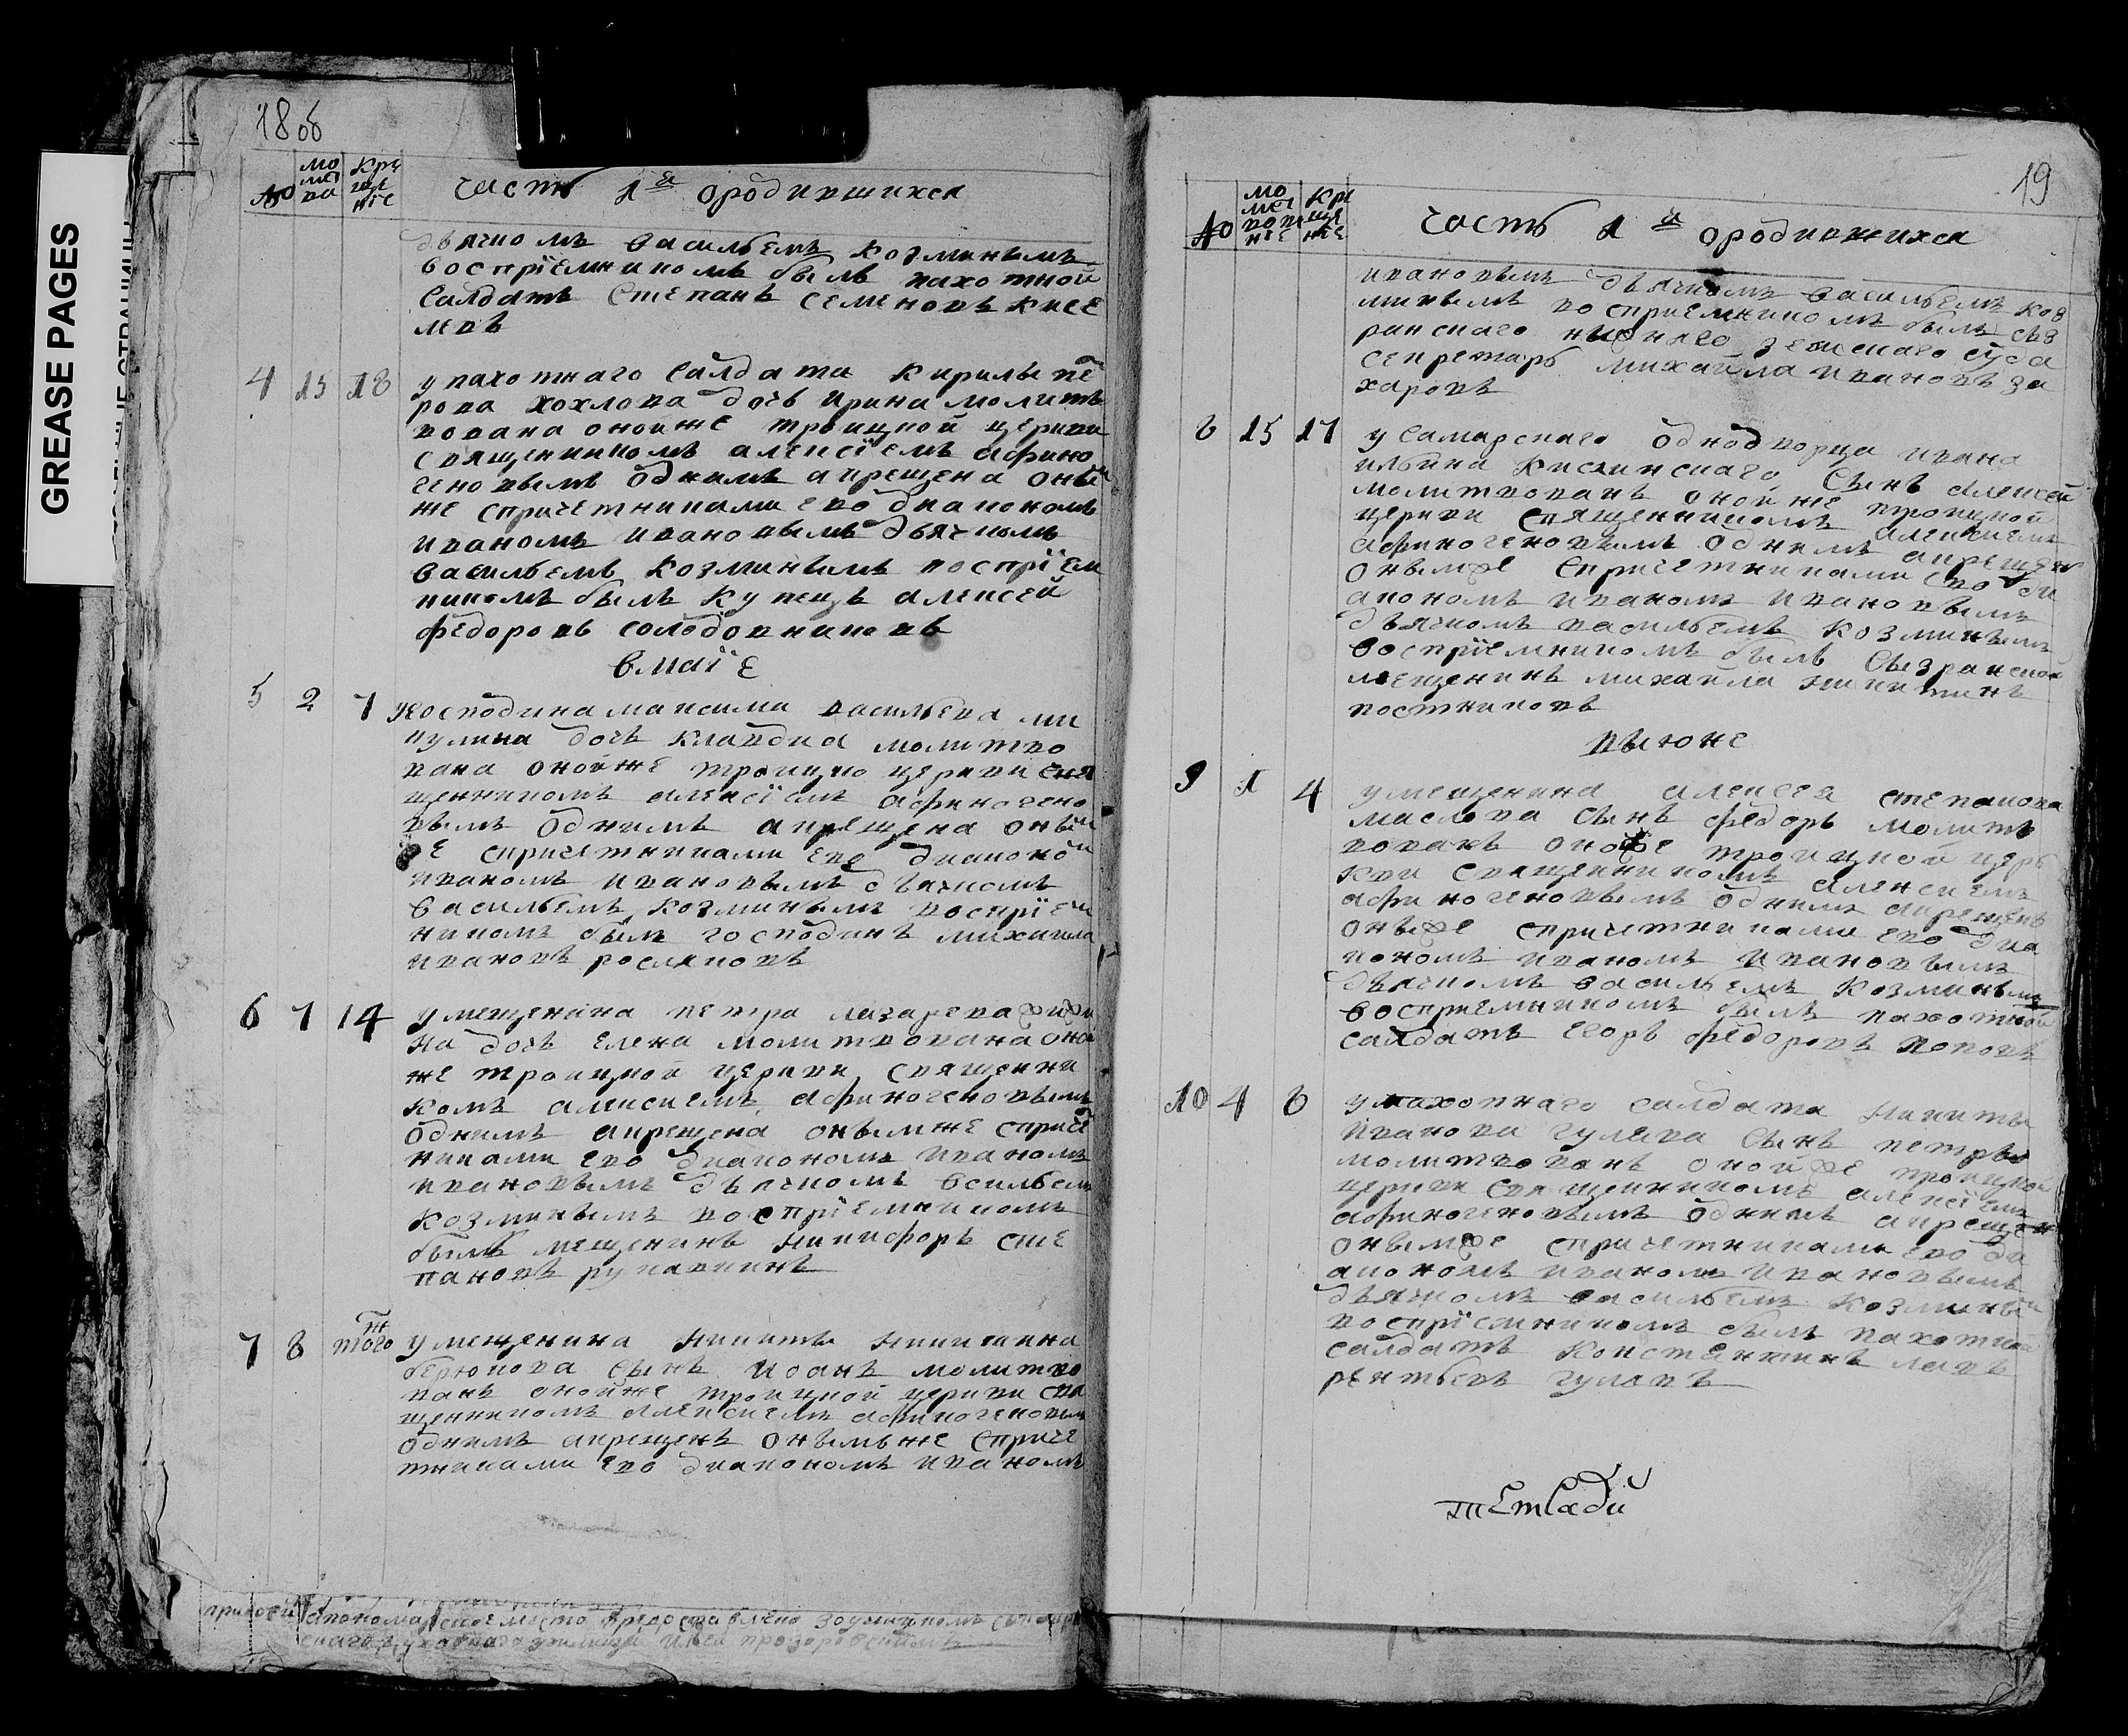 GREASE PAGES
18 об
№ мо лит ва Кре ще ніе часть 1я ородившихся
дьячкомъ васильемъ козминымъ
воспріемникомъ былъ пахотной
салдатъ Степанъ семеновъ кисе
левъ
4 15 18 у пахотнаго салдата кирилы пе
рова хохлова дочь ирина молитв
вована онойже троицкой церкви
священникомъ алексіемъ афино
геновымъ однимъ акрещена оны
же спричетниками ево диакономъ
иваномъ ивановымъ дьячкомъ
васильемъ козминымъ воспріем
никомъ былъ купецъ алексей
федоровъ солодовниковъ
вмаіе
5 2 7 угосподина максима васильева ми
кулина дочь клавдиа молитво
вана онойже троицко церкви свя
щенникомъ алексіемъ афиногено
вымъ однимъ акрещена оным
же спричетниками ево диаконом
иваномъ ивановымъ дьячкомъ
васильемъ козминымъ воспріем
никомъ былъ господинъ михаила
ивановъ росляковъ
6 7 14 умещенина петра лазарева
на дочь елена молитвована оной
же троицкой церкви священни
комъ алексиемъ афиногеновымъ
однимъ акрещена онымже приче
никами ево диакономъ иваномъ
ивановымъ дьячкомъ всильем
козминымъ воспріемникомъ
былъ мещенинъ никифоръ сте
пановъ рукавкинъ
7 8 того ж умещенина никиты никитина
бирюкова сынъ иоанъ молитво
ванъ онойже троицкой церкви свя
щенникомъ алексиемъ афиногеновым
однимъ акрещенъ онымъже сприче
тниками ево диакономъ иваномъ
19
№ мо лит вова ніе кре ще ніе часть 1я ородившихся
ивановымъ дьячкомъ васильемъ коз
минымъ восприемникомъ былъ сыз
ранскаго нижняго земскаго суда
секретарь михайла ивановъ за
харовъ
8 15 17 у самарскаго однодворца ивана
ильина кислинскаго сынъ алексей
молитвованъ онойже троицкой
церкви священникомъ алексиемъ
афиногеновымъ однимъ акрещен
онымже спричетниками ево ди
акономъ иваномъ ивановымъ
дьячкомъ васильемъ козминым
воспріемникомъ былъ сызранской
мещенинъ михаила никитинъ
постниковъ
выюне
9 1 4 умещенина алексея степанова
маслова сынъ федоръ молитв
вованъ онойже троицкой церь
кви священникомъ алексиемъ
афиногеновымъ однимъ акрещенъ
онымже спричетниками ево диа
кономъ иваномъ ивановымъ
дьячкомъ васильемъ козминым
восприемникомъ былъ пахотной
салдатъ егоръ федоровъ поповъ
10 4 8 упахотнаго салдата никиты
иванова гуляева сынъ петръ
молитвованъ онойже троицкой
церкви священникомъ алексіемъ
афиногеновымъ однимъ акрещен
онымже спричетниками ево ди
акономъ иваномъ ивановымъ
дьячкомъ васильемъ козминым
воспріемникомъ былъ пахотной
салдатъ константинъ лавъ
рентьевъ гулавъ
тетрадй
пономарское место предоставлено